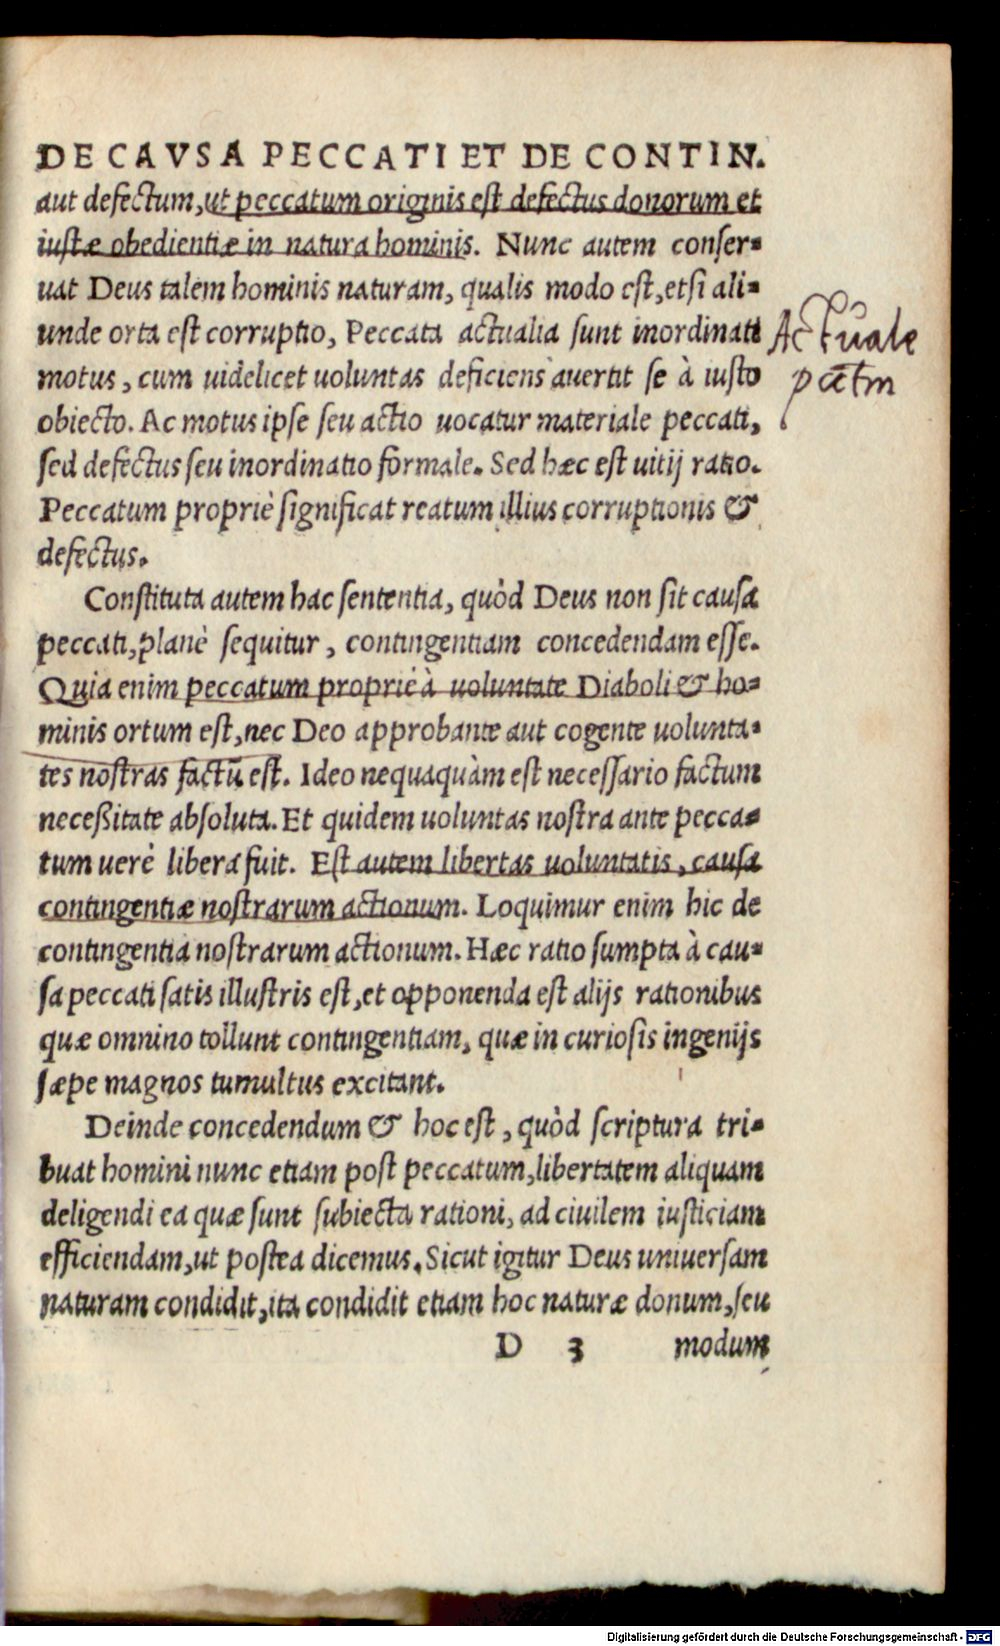 DE CAVSA PECCATI ET DE CONTIN.
aut defectum, ut peccatum originis est defectus donorum et
iustæ obedientiæ in natura hominis. Nunc autem conser-
uat Deus talem hominis naturam, qualis modo est, etsi ali-
unde orta est corruptio, Peccata actualia sunt inordinati
Actuale
motus, cum uidelicet uoluntas deficiens auertit se à iusto
pctm
obiecto. Ac motus ipse seu actio uocatur materiale peccati,
sed defectus seu inordinatio formale. Sed hæc est uitij ratio.
Peccatum propriè significat reatum illius corruptionis &
defectus.
Constituta autem hac sententia, quòd Deus non sit causa
peccati, planè sequitur, contingentiam concedendam esse.
Quia enim peccatum propriè à uoluntate Diaboli & ho-
minis ortum est, nec Deo approbante aut cogente uolunta-
tes nostras factū est. Ideo nequaquàm est necessario factum
neceßitate absoluta. Et quidem uoluntas nostra ante pecca-
tum uerè libera fuit. Est autem libertas uoluntatis, causa
contingentiæ nostrarum actionum. Loquimur enim hic de
contingentia nostrarum actionum. Hæc ratio sumpta à cau-
sa peccati satis illustris est, et opponenda est alijs rationibus
quæ omnino tollunt contingentiam, quæ in curiosis ingenijs
sæpe magnos tumultus excitant.
Deinde concedendum & hoc est, quòd scriptura tri-
buat homini nunc etiam post peccatum, libertatem aliquam
deligendi ea quæ sunt subiecta rationi, ad ciuilem iusticiam
efficiendam, ut postea dicemus. Sicut igitur Deus uniuersam
naturam condidit, ita condidit etiam hoc naturæ donum, seu
D 3 modum
Digitalisierung gefördert durch die Deutsche Forschungsgemeinschaft - DFG